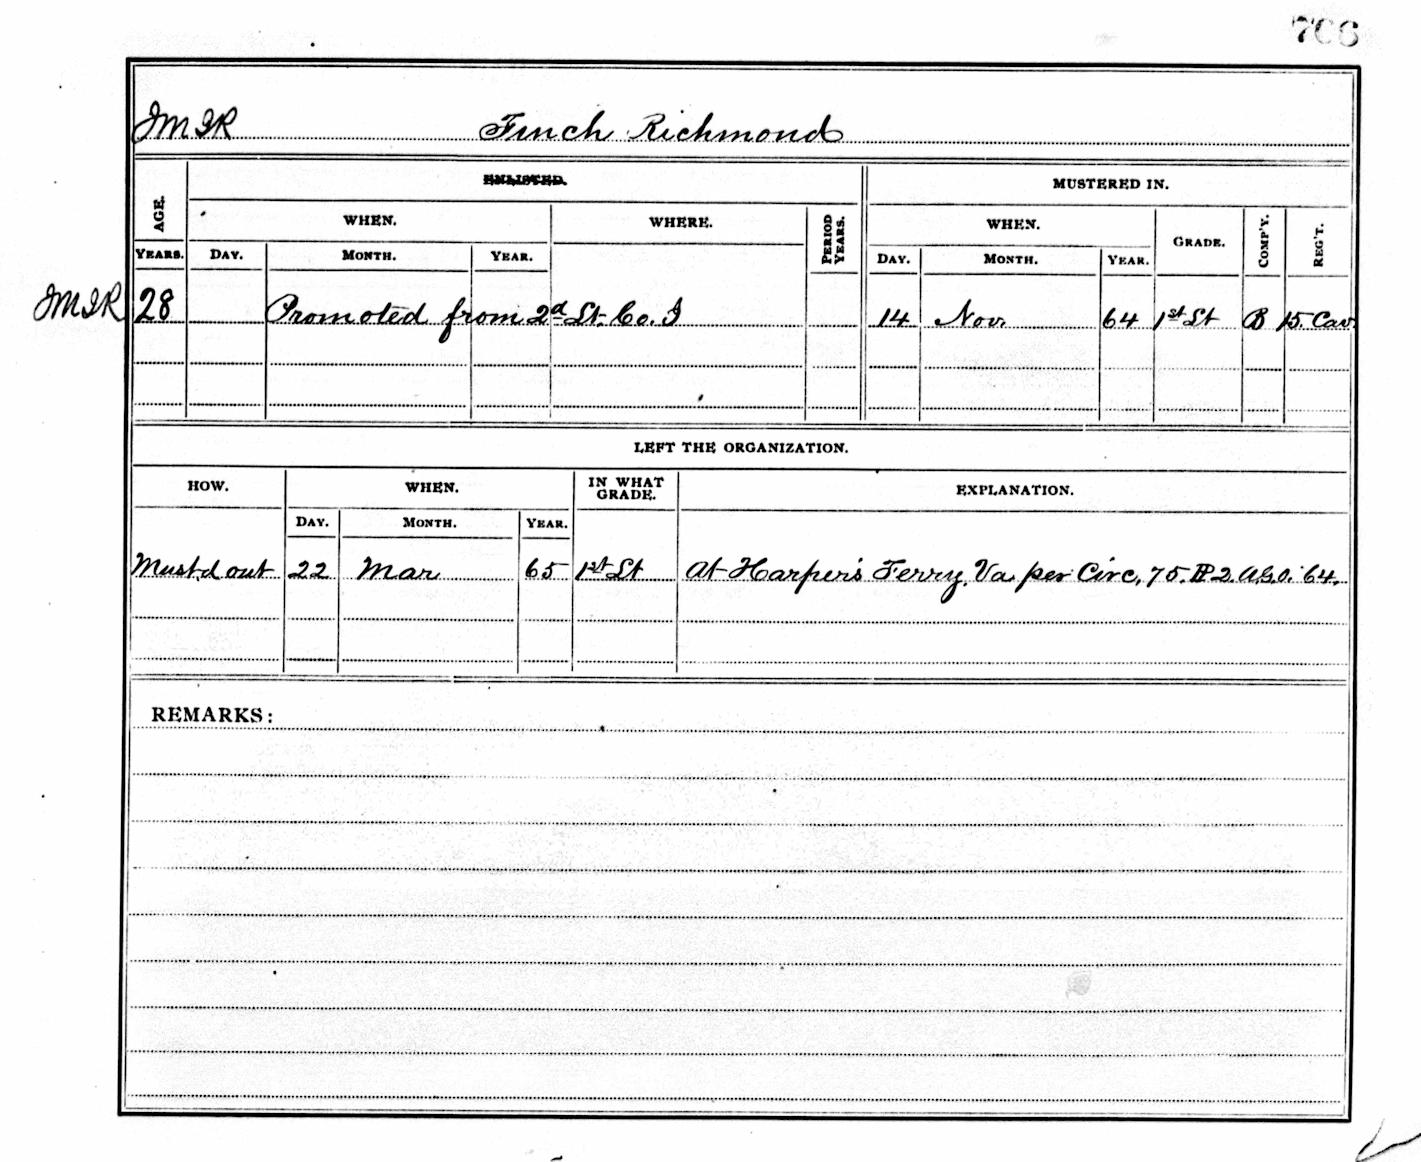 706
JMIR Finch Richmond
ENLISTED. MUSTERED IN.
AGE. WHEN. WHERE. PERIOD YEARS. WHEN. GRADE. COMP'Y. REG'T.
YEARS. DAY. MONTH. YEAR. DAY. MONTH. YEAR.
JMIR 28 Promoted from 2d Lt. Co. I 14 Nov. 64 1st Lt B 15. Cav.
LEFT THE ORGANIZATION.
HOW. WHEN. IN WHAT GRADE. EXPLANATION.
DAY. MONTH. YEAR.
Must.d out 22 Mar 65 1st Lt At Harper's Ferry, Va. per Circ, 75. P 2. A.G.O. '64.
REMARKS: